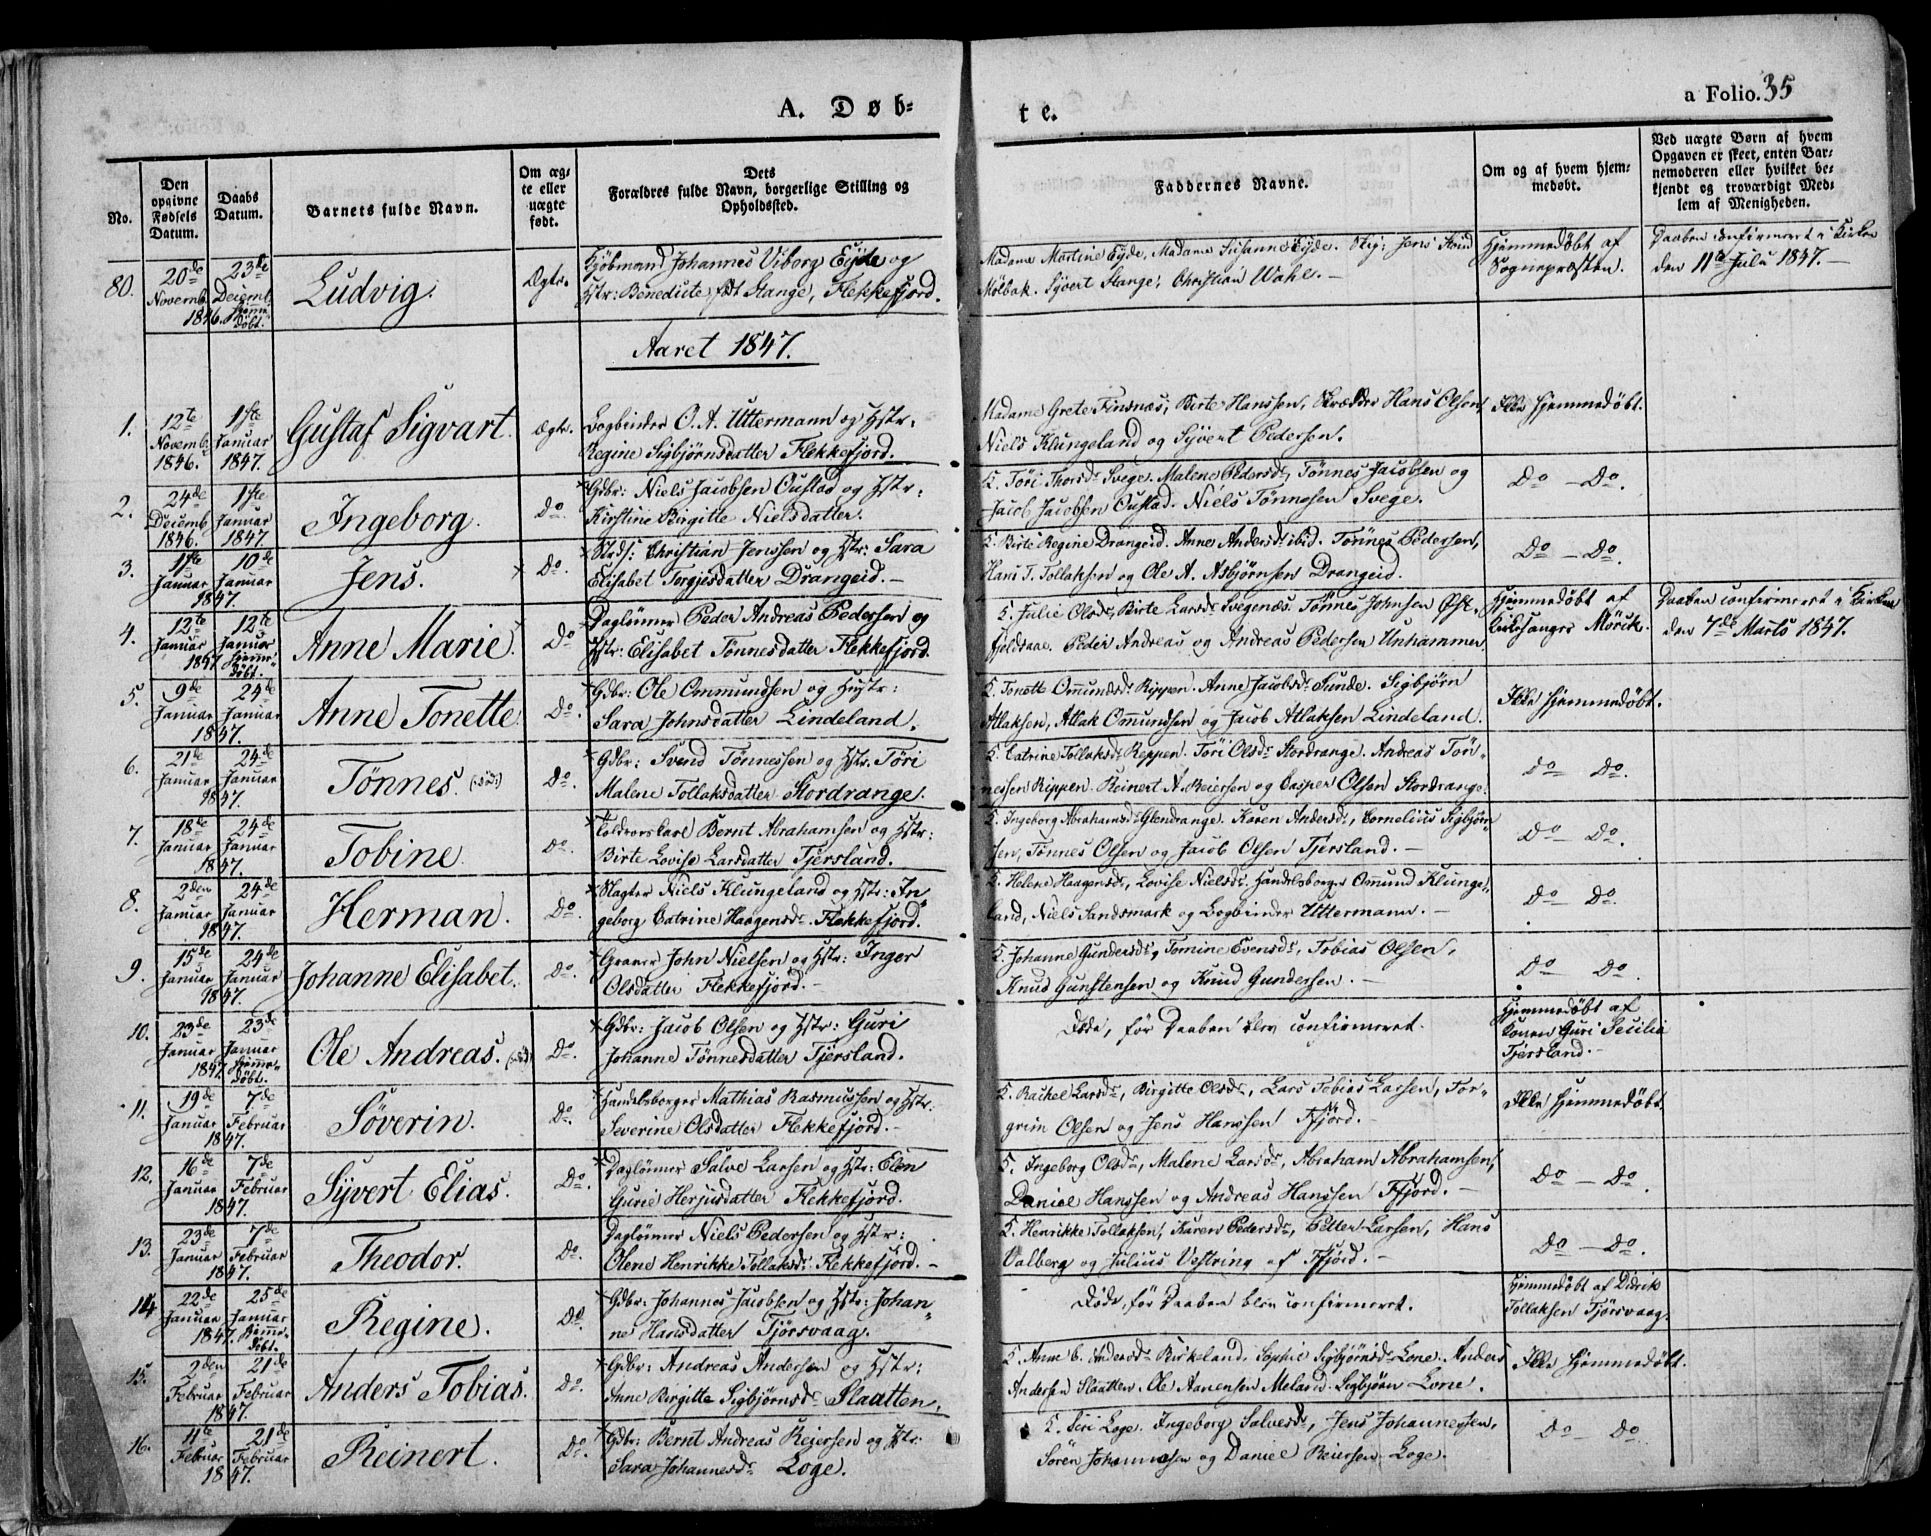 A. Døb-
te.
a Folio. 35
No.
Den opgivne Fødsels Datum.
Daabs Datum.
Barnets fulde Navn.
Om ægte eller uægte født.
Dets Forældres fulde Navn, borgerlige Stilling og Opholdssted.
Faddernes Navne.
Om og af hvem hjemmedøbt.
Ved uægte Børn af hvem Opgaven er skeet, enten Barnemoderen eller hvilket bekjendt og troværdigt Medlem af Menigheden.
80. 20de Novemb. 1846. 23de Decemb. Hjemmedøbt. Ludvig. Ægte.
Kjøbmand Johannes Viborg Eyde og
Hstr: Benedicte født Stange, Flekkefjord.
Madame Martine Eyde, Madame Susanne Eyde. Jens
Mølbak. Sjvert Stange, Christian Wahl. —
Hjemmedøbt af
Sognepræsten.
Daaben confirmeret i Kirken
den 11te Julu 1847. —
Aaret 1847.
1. 12te Novemb. 1846. 1ste Januar 1847. Gustaf Sigvart. Ægte.
Bogbinder O. A. Uttermann og Hstr.
Regine Sigbjørnsdatter Flekkefjord.
Madame Grete Finsnæs, Birte Hanssen, Skrædder Hans Olsen,
Niels Klungeland og Sjvert Pedersen.
Ikke Hjemmedøbt.
2. 24de Decemb. 1846. 1ste Januar 1847. Ingeborg. Do.
Gdbr: Niels Jacobsen Oustad og Hstr:
Kirstine Birgitte Nielsdatter.
5. Töri Thorsdr Svege. Malene Pedersdr, Tönnes Jacobsen og
Jacob Jacobsen Oustad. Niels Tönnesen Svege.
Do — Do.
3. 1ste Januar 1847. 10de Januar Jens. Do.
Christian Jenssen og Hstr: Sara
Elisabet Torgjesdatter Drangeid. —
5. Birte Regine Drangeid. Anne Andersdr ibid. Tönnes Pedersen,
Hans T. Tollaksen og Ole A. Asbjørnsen Drangeid.
Do — Do.
4. 12te Januar 1847. 12te Januar Hjemmedøbt. Anne Marie. Do
Daglönner Peder Andreas Pedersen og
Hstr: Elisabet Tönnesdatter Flekkefjord.
5. Julie Olsdr, Birte Larsdr Svegenæs. Tönnes Johnsen
Peder Andreas og Andreas Pedersen Unhammer.
Hjemmedøbt af
Kirkesanger Mörck.
Daaben confirmeret i Kirken
den 7de Marts 1847.
5. 9de Januar 1847. 24de Januar Anne Tonette. Do.
Gdbr: Ole Ommundsen og Hustr:
Sara Johnsdatter Lindeland.
5. Tonette Omundsdr Rippen. Anne Jacobsdr Sunde. Sigbjörn
Atlaksen, Atlak Omundsen og Jacob Atlaksen Lindeland.
Ikke Hjemmedøbt.
6. 21de Januar 1847. 24de Januar Tönnes. Do.
Gdbr: Svend Tönnessen og Hstr. Töri
Malene Tollaksdatter Stordrange.
5. Catrine Tollaksdr Reppen. Töri Olsdr Stordrange. Andreas Tön-
nessen Rippen. Reinert A. Reiersen og Casper Olsen Stordrange.
Do Do.
7. 18de Januar 1847. 24de Januar Tobine. Do.
Bernt Abrahamsen og Hstr:
Birte Lovise Larsdatter Tjersland.
5. Ingeborg Abrahamsdr Glendrange. Karen Andersdr, Cornelius Sigbjörn-
sen, Tönnes Olsen og Jacob Olsen Tjersland. —
Do Do.
8. 2den Januar 1847. 24de Januar Herman. Do.
Slagter Niels Klungeland og Hstr: In-
geborg Catrine Haagensdr Flekkefjord.
5. Helene Haagensdr, Lovise Nielsdr. Handelsborger Omund Klunge-
land, Niels Sandsmark og Bogbinder Uttermann. —
Do Do.
9. 15de Januar 1847. 24de Januar Johanne Elisabet. Do.
Graver John Nielsen og Hstr: Inger
Olsdatter Flekkefjord. —
5. Johanne Gundersdr, Tomine Evensdr, Tobias Olsen,
Knud Gunstensen og Knud Gundersen. —
Do Do.
10. 23de Januar 1847. 23de Januar Hjemmedøbt. Ole Andreas. Do.
Gdbr: Jacob Olsen og Hstr: Guri
Johanne Tönnesdatter Tjersland.
Döde, för Daaben blev confirmeret.
Hjemmedøbt af
Konen Guri Secilia
Tjersland. —
11. 19de Januar 1847. 7de Februar Söverin. Do.
Handelsborger Mathias Rasmussen og Hstr:
Severine Olsdatter Flekkefjord. —
5. Rachel Larsdr, Birgitte Olsdr, Lars Tobias Larsen, Tor-
grim Olsen og Jens Hanssen Ffjord. —
Ikke Hjemmedøbt.
12. 16de Januar 1847. 7de Februar Sjvert Elias. Do.
Daglönner Salve Larsen og Hstr: Elen
Gurie Herjusdatter Flekkefjord.
5. Ingeborg Olsdr, Malene Larsdr, Abraham Abrahamsen,
Daniel Hanssen og Andreas Hanssen Ffjord. —
Do — Do.
13. 23de Januar 1847. 7de Februar Theodor. Do.
Daglönner Niels Pedersen og Hstr:
Olene Henrikke Tollaksdr Flekkefjord. —
5. Henrikke Tollaksen, Karen Pedersdr, Petter Larsen, Hans
Valberg og Julius Vestring af Ffjord. —
Do — Do.
14. 22de Januar 1847. 25de Januar Hjemmedöbt. Regine. Do.
Gdbr: Johannes Jacobsen og Hstr: Johan-
ne Hansdatter Tjörsvaag.
Döde, för Daaben blev confirmeret.
Hjemmedöbt af Didrik
Tollaksen Tjörsvaag.
15. 2den Februar 1847. 21de Februar Anders Tobias. Do.
Gdbr: Andreas Andersen og Hstr:
Anne Birgitte Sigbjörnsdr Slaatten.
5. Anne C. Andersdr Birkeland. Sophie Sigbjörnsdr Lone. Anders
Andersen Slaatten. Ole Aanensen Meland. Sigbjörn Lone.
Ikke Hjemmedøbt.
16. 11te Februar 1847. 21de Februar Reinert. Do.
Gdbr: Bernt Andreas Reiersen og Hstr:
Sara Johannesdr Loge.
5. Siri Loge. Ingeborg Salvesdr, Jens Johannessen,
Sören Johannesen og Daniel Reiersen Loge.
Do — Do.